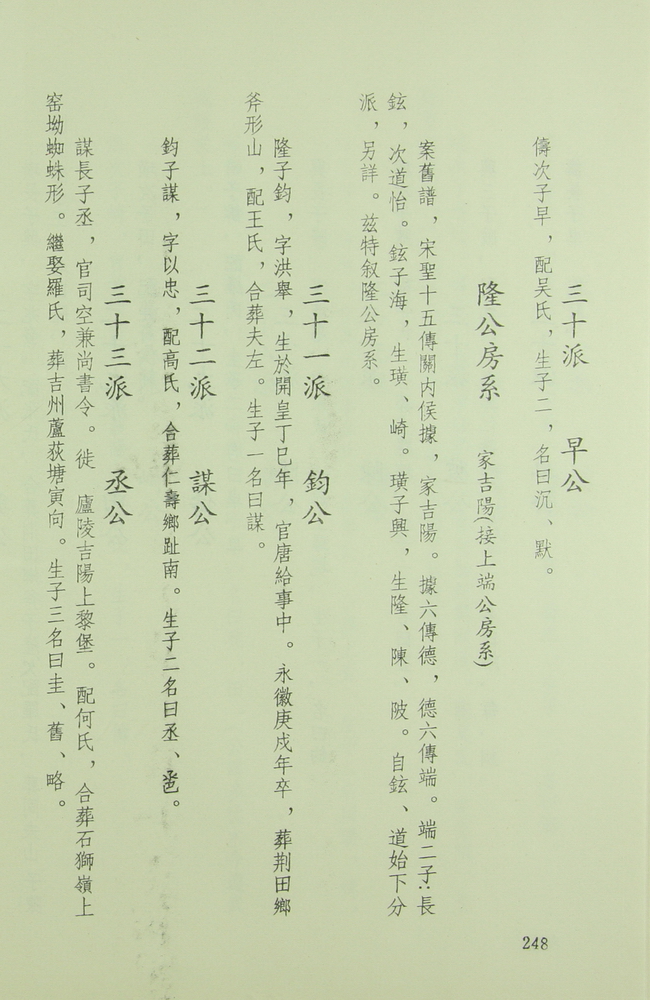 三十派　早公
儔次子早，配吴氏，生子二，名曰沉、默。
隆公房系　家吉陽(接上端公房系)
案舊譜，宋聖十五傳關内侯據，家吉陽。據六傳德，德六傳端。端二子:長
鉉，次道怡。鉉子海，生璜、崎。璜子興，生隆、陳、陂。自鉉、道始下分
派，另詳。兹特叙隆公房系。
三十一派　鈞公
隆子鈞，字洪舉，生於開皇丁巳年，官唐給事中。永徽庚戍年卒，葬荆田鄉
斧形山，配王氏，合葬夫左。生子一名曰謀。
三十二派　謀公
鈞子謀，字以忠，配高氏，合葬仁壽鄉趾南。生子二名曰丞、巹。
三十三派　丞公
謀長子丞，官司空兼尚書令。徙　廬陵吉陽上黎堡。配何氏，合葬石獅嶺上
窑坳蜘蛛形。繼娶羅氏，葬吉州蘆荻塘寅向。生子三名曰圭、舊、略。
248